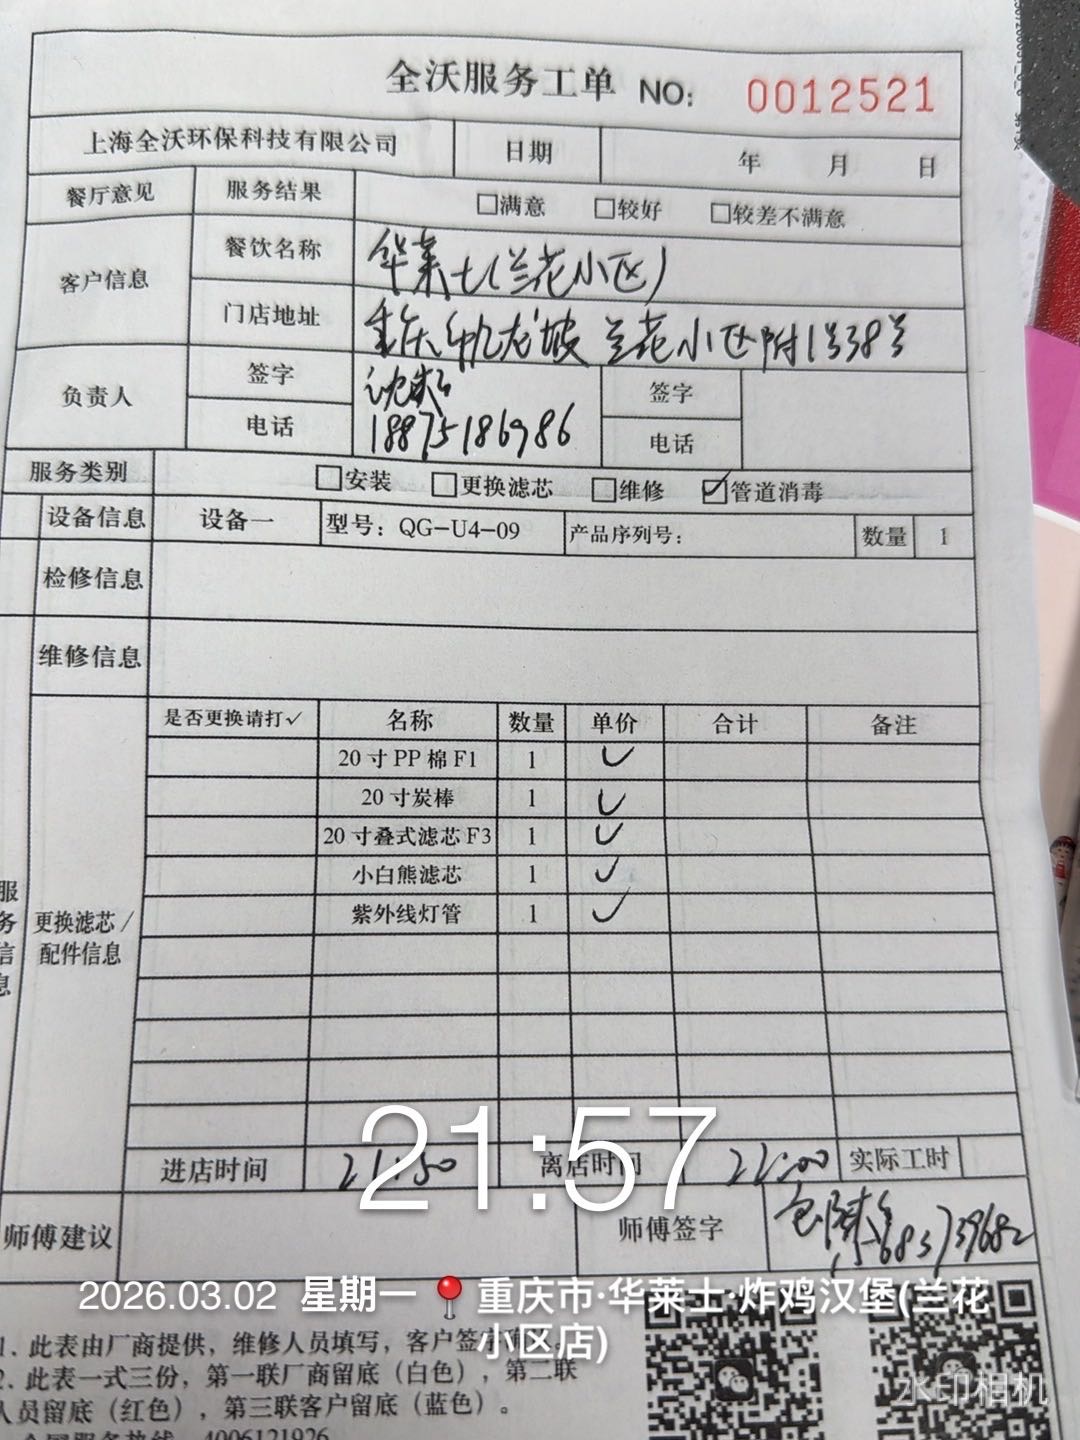 全沃服务工单 NO: 0012521
上海全沃环保科技有限公司 日期 年 月 日
餐厅意见 服务结果 □满意 □较好 □较差不满意
客户信息 餐饮名称 华莱士(兰花小区)
门店地址 重庆九龙坡兰花小区附1号38号
负责人 签字 沈 签字
电话 18875186986 电话
服务类别 □安装 □更换滤芯 □维修 ☑管道消毒
设备信息 设备一 型号: QG-U4-09 产品序列号: 数量 1
检修信息
维修信息
是否更换请打✓ 名称 数量 单价 合计 备注
20寸PP棉F1 1 ✓
20寸炭棒 1 ✓
20寸叠式滤芯F3 1 ✓
小白熊滤芯 1 ✓
紫外线灯管 1 ✓
服务信息
更换滤芯/
配件信息
21:57
进店时间 21:50 离店时间 22:00 实际工时
师傅建议 师傅签字
2026.03.02 星期一 重庆市·华莱士·炸鸡汉堡(兰花
小区店)
1. 此表由厂商提供，维修人员填写，客户签字
2. 此表一式三份，第一联厂商留底（白色），第二联
人员留底（红色），第三联客户留底（蓝色）。
4006121926
水印相机